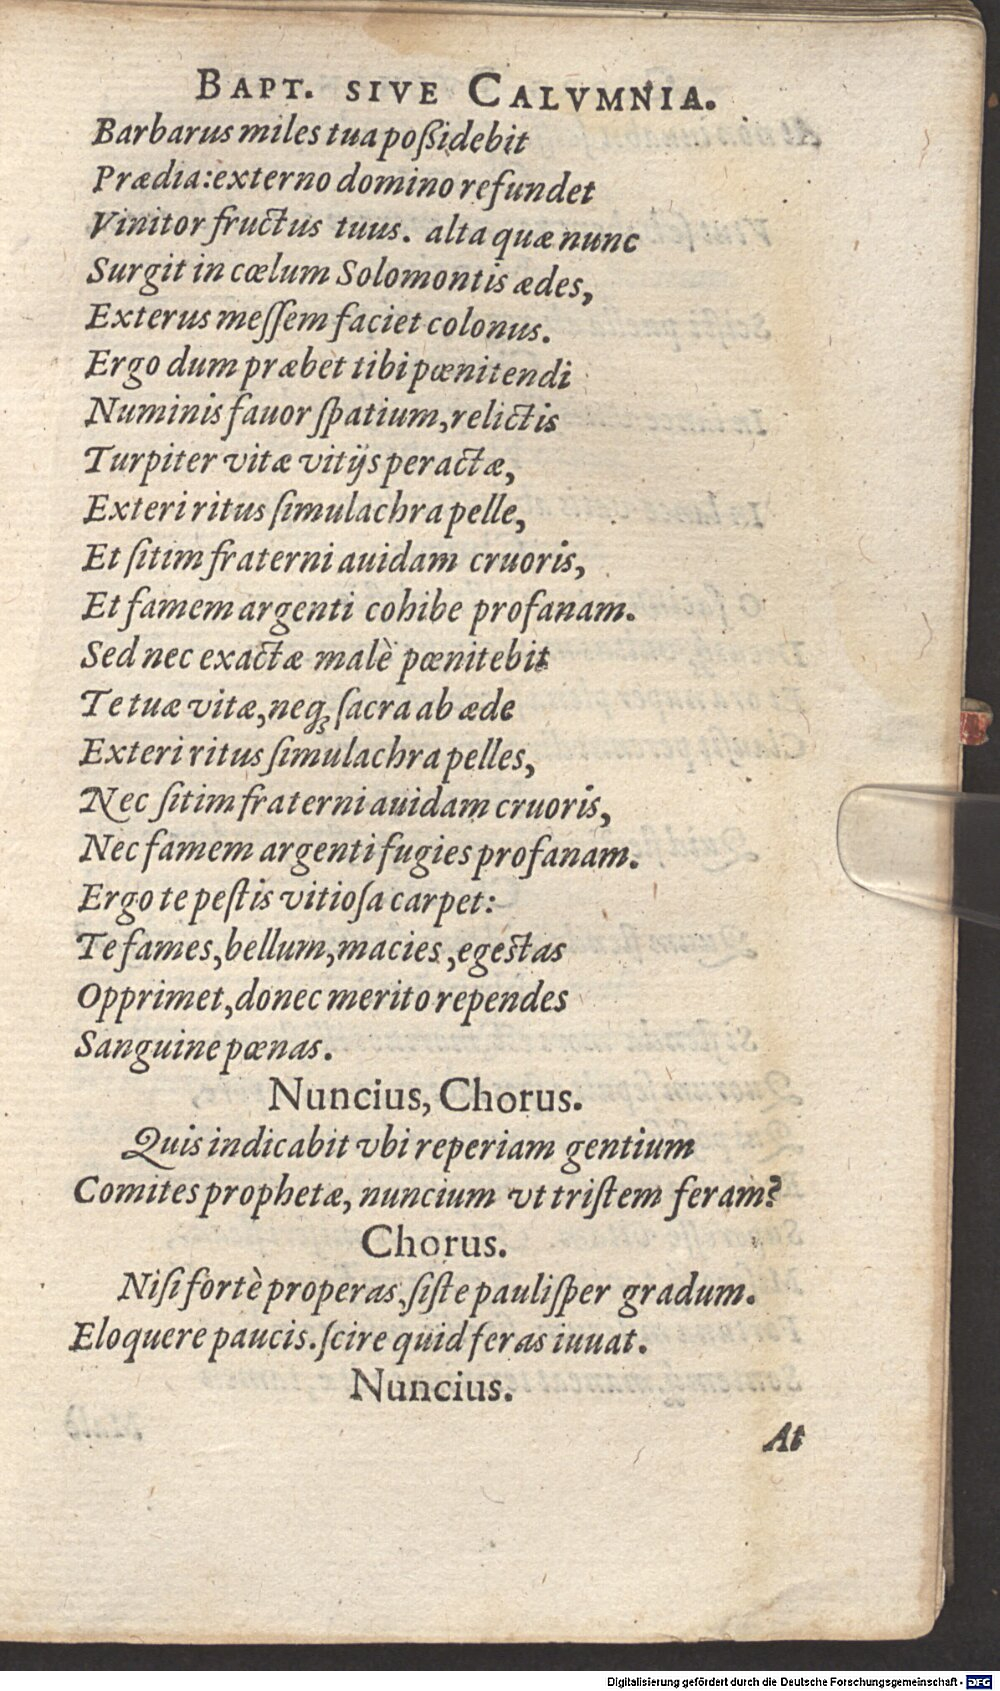 BAPT. SIVE CALVMNIA.
Barbarus miles tua poßidebit
Prædia: externo domino refundet
Vinitor fructus tuus. alta quæ nunc
Surgit in cœlum Solomontis ædes,
Exterus meſſem faciet colonus.
Ergo dum præbet tibi pœnitendi
Numinis fauor ſpatium, relictis
Turpiter vitæ vitijs peractæ,
Exteri ritus ſimulachra pelle,
Et ſitim fraterni auidam cruoris,
Et famem argenti cohibe profanam.
Sed nec exactæ malè pœnitebit
Te tuæ vitæ, neq; ſacra ab æde
Exteri ritus ſimulachra pelles,
Nec ſitim fraterni auidam cruoris,
Nec famem argenti fugies profanam.
Ergo te peſtis vitioſa carpet:
Te fames, bellum, macies, egestas
Opprimet, donec merito rependes
Sanguine pœnas.
Nuncius, Chorus.
Quis indicabit vbi reperiam gentium
Comites prophetæ, nuncium vt triſtem feram?
Chorus.
Niſi fortè properas, ſiſte pauliſper gradum.
Eloquere paucis. ſcire quid feras iuuat.
Nuncius.
At
Digitalisierung gefördert durch die Deutsche Forschungsgemeinschaft - DFG